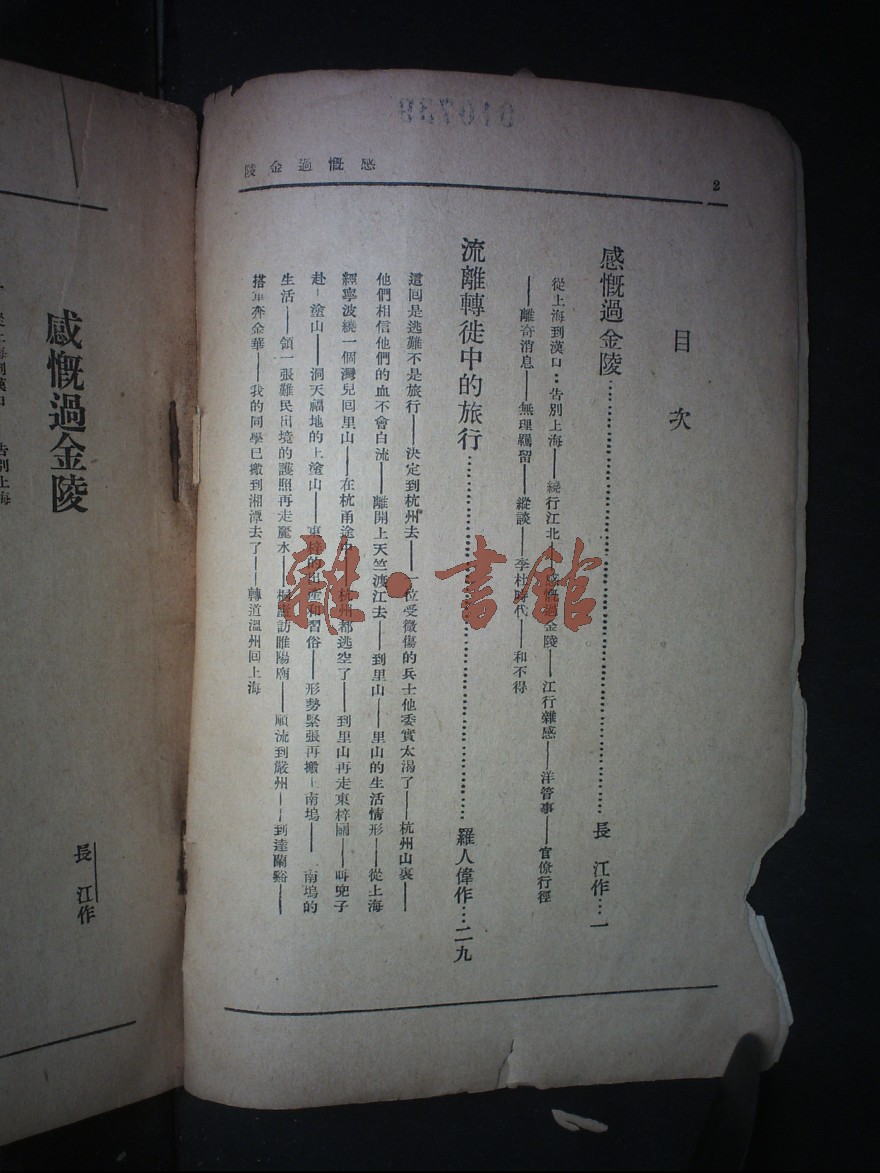 感慨過金陵
2
目次
感慨過金陵……長江作…一
從上海到漢口：告別上海——繞行江北——感慨過金陵——江行雜感——洋管事——官僚行徑
——離奇消息——無理羈留——縱談——李杜時代——和不得
流離轉徙中的旅行……羅人偉作…二九
這回是逃難不是旅行——決定到杭州去——一位受微傷的兵士他委實太渴了——杭州山裏——
他們相信他們的血不會白流——離開上天竺渡江去——到里山——里山的生活情形——從上海
經寧波繞一個灣兒回里山——在杭甬途中——杭州都逃空了——到里山再走東梓關——叫兜子
赴上塗山——洞天福地的上塗山——東梓的出產和習俗——形勢緊張再搬上南塢——南塢的
生活——領一張難民出境的護照再走麗水——桐廬訪睢陽廟——順流到嚴州——到達蘭谿——
搭車奔金華——我的同學已搬到湘潭去了——轉道溫州回上海
雜·書館
感慨過金陵
長江作